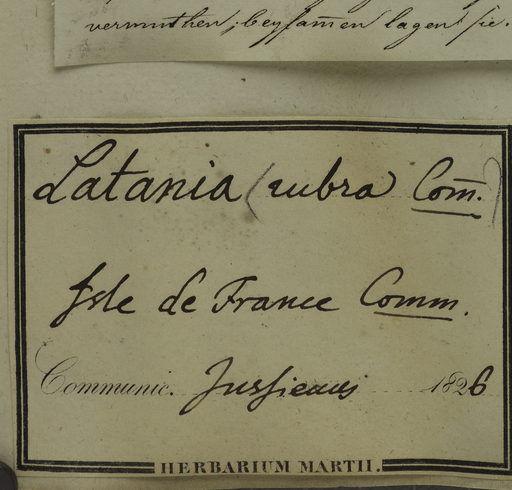 vermuthen; beysamen lagen sie.
Latania (rubra) Com̄.)
Isle de France Comm.
Communic. Jussieuus 1826
HERBARIUM MARTII.